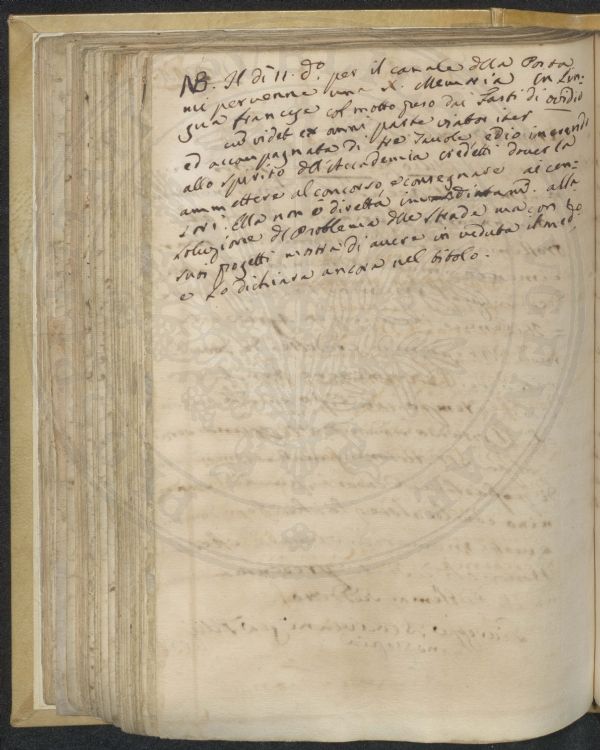 NB. Il dì 11. do. per il canale della Posta
mi pervenne una X. Memoria in Lin-
gua francese col motto preso dai Fasti di ovidio
cum videt ex omni parte viator iter
ed accompagnata di tre Tavole, ed io inerendo
allo spirito dell'Accademia credetti dover la
ammettere al concorso, e consegnare ai cen-
sori. Ella non è diretta immediatam. alla
soluzione del Problema delle strade ma con
suoi progetti mostra di avere in veduta il medo.
e lo dichiara ancora nel titolo.